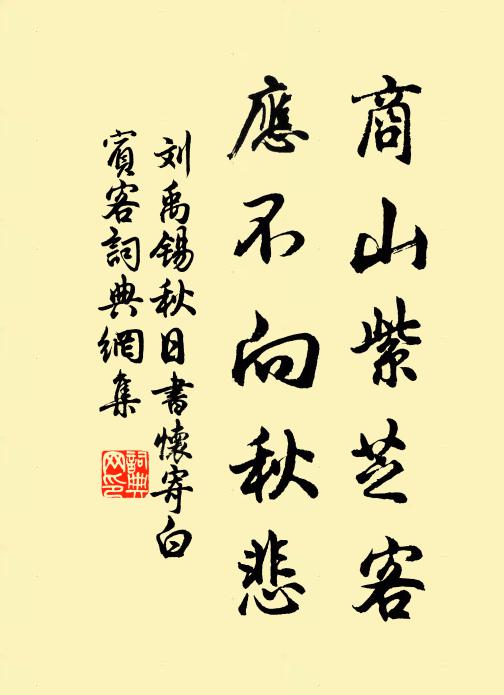 商山紫芝客
應不向秋悲
刘禹锡秋日書懷寄白
賓客詞典網集
詞典网印